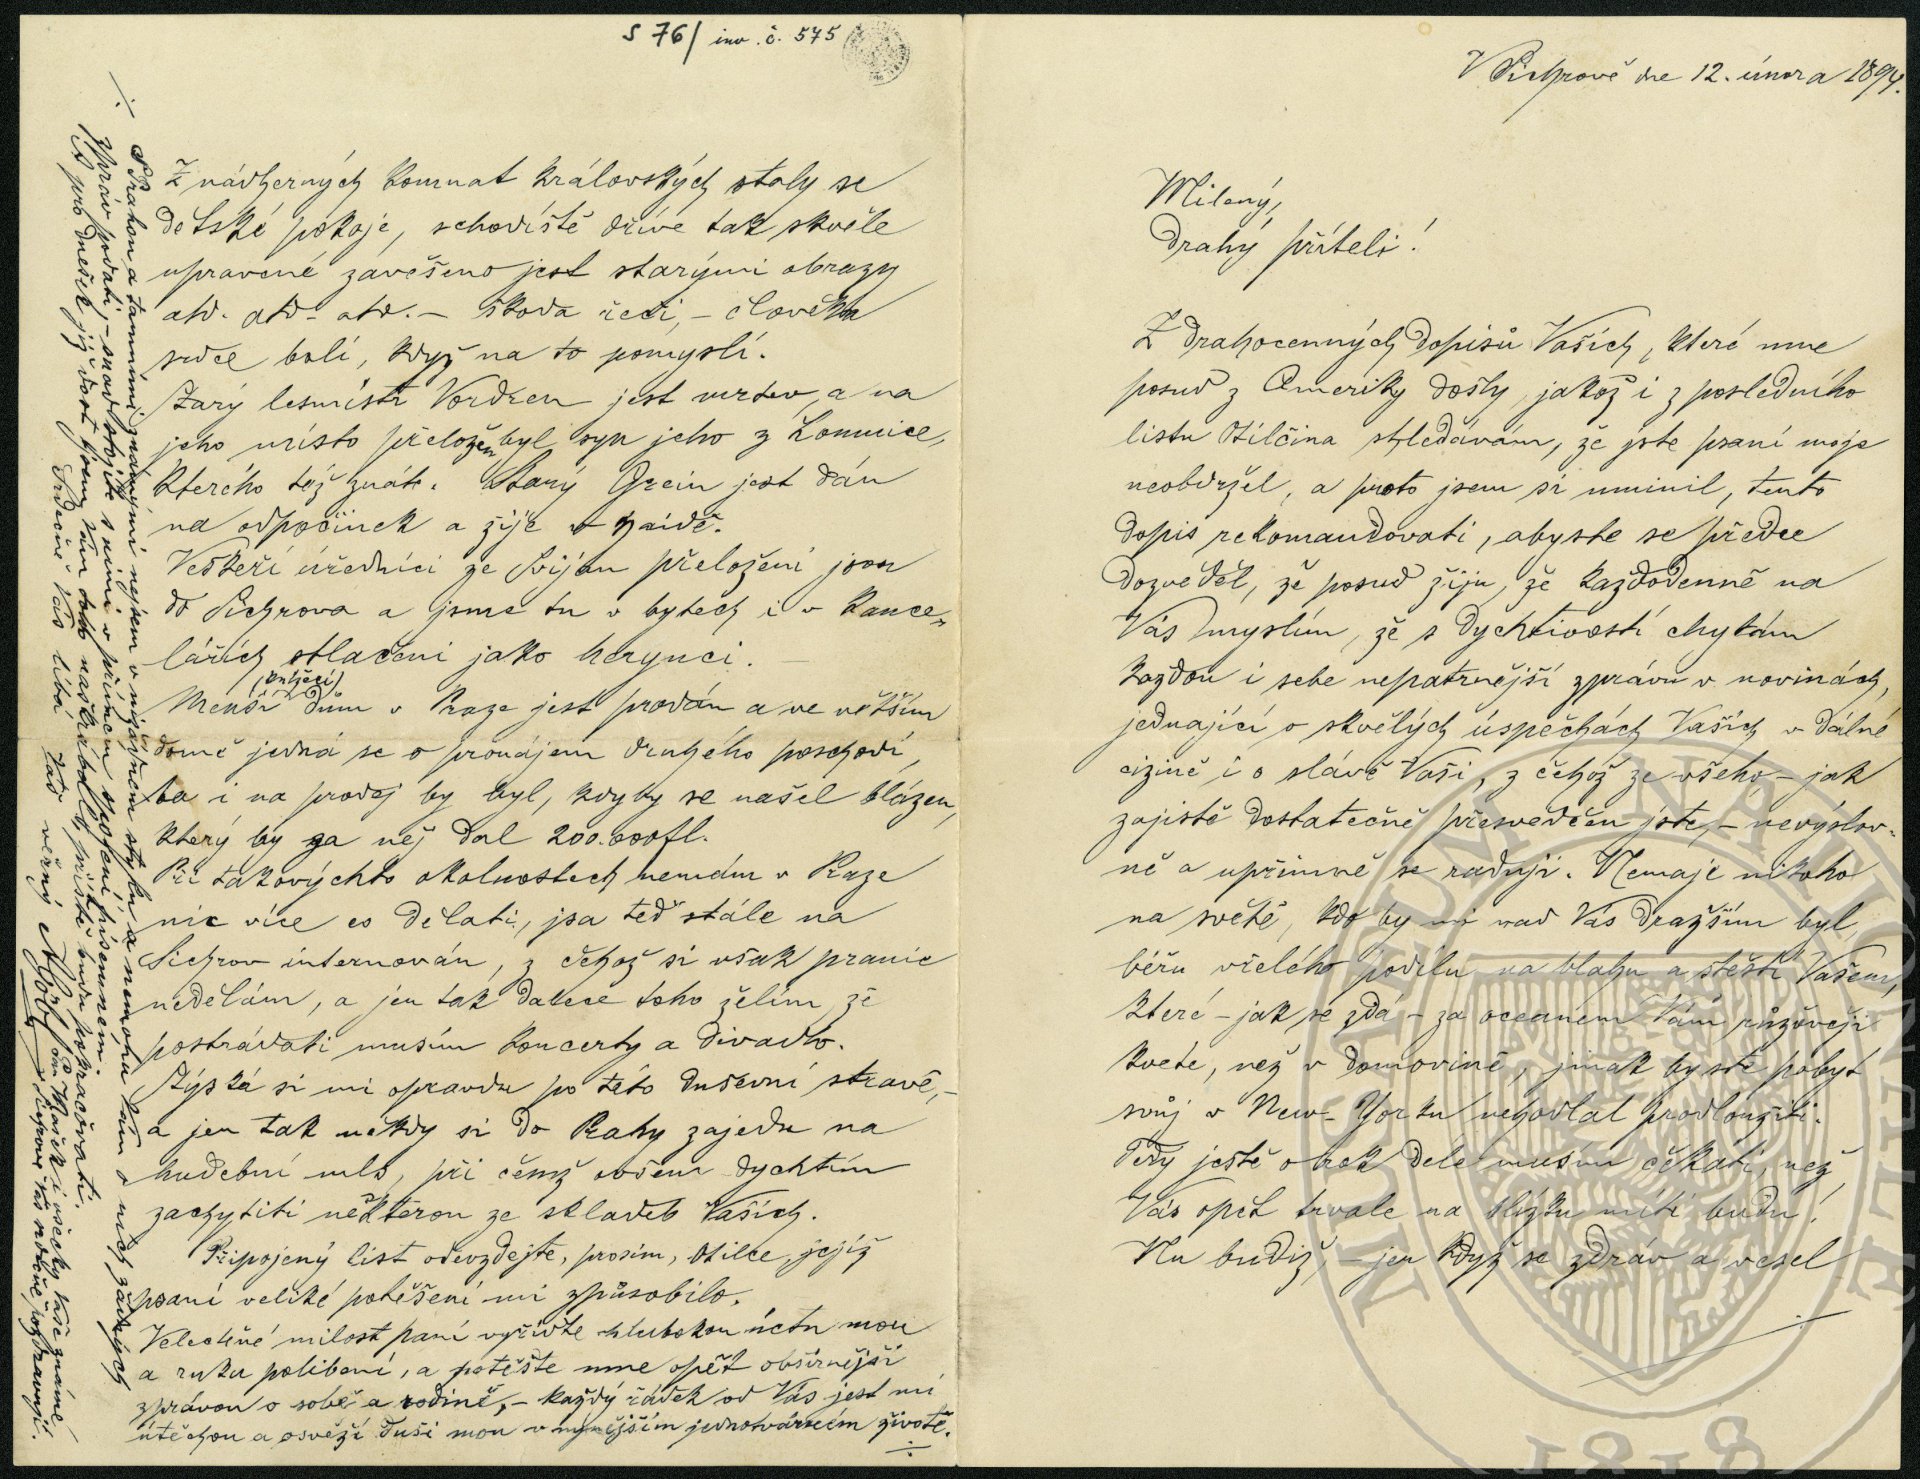 S 76/ inv. č. 575
V Sichrově dne 12. února 1894.
Milený,
drahý příteli!
Z drahocenných dopisů Vašich, které mne
posud z Ameriky došly, jakož i z posledního
listu Otilčina shledávám, že jste psaní moje
neobdržel, a proto jsem si umínil, tento
dopis rekomandovati, abyste se předce
dozvěděl, že posud žiju, že každodenně na
Vás myslím, že s dychtivostí chytám
každou i sebe nepatrnější zprávu v novinách,
jednající o skvělých úspěchách Vašich v dálné
cizině i o slávě Vaší, z čehož ze všeho – jak
zajisté dostatečně přesvedčen jste, – nevýslov-
ně a upřímně se raduji. Nemaje nikoho
na světě, kdo by mi nad Vás dražším byl
béřu vřelého podílu na blahu a stěstí Vašem,
které – jak se zdá – za oceanem Vám růžověji
kvete, než v domovině, jinak by ste pobyt
svůj v New-Yorku nehodlal prodloužiti.
Tedy ještě o rok déle musím čekati, než
Vás opět trvale na blízku míti budu!
Nu budiž, – jen když se zdráv a vesel
Z nádherných komnat královských staly se
dětské pokoje, schodiště dříve tak skvěle
upravené zavěšeno jest starými obrazy
atd. atd. atd. – škoda řeči, – člověka
srdce bolí, když na to pomyslí.
Starý lesmistr Vordren jest mrtev, a na
jeho místo přeložen byl syn jeho z Lomnice,
kterého též znáte. Starý Grein jest dán
na odpočinek a žije v Haidě.
Veškeří úředníci ze Svijan přeloženi jsou
do Sichrova a jsme tu v bytech i v kance-
lářích stlačeni jako herynci. –
Menší (knížecí) dům v Praze jest prodán a ve větším
domě jedná se o pronájem druhého poschodí,
ba i na prodej by byl, kdyby se našel blázen,
který by za něj dal 200.000 fl.
Při takovýchto okolnostech nemám v Praze
nic více co dělati, jsa teď stále na
Sichrov internován, z čehož si však pranic
nedělám, a jen tak dalece toho želím, že
postrádati musím koncerty a divadlo.
Stýská si mi opravdu po této duševní stravě, –
a jen tak někdy si do Prahy zajedu na
hudební mls, při čemž ovšem dychtím
zachytiti některou ze skladeb Vašich.
Připojený list odevzdejte, prosím, Otilce, jejíž
psaní veliké potěšení mi způsobilo.
Velectěné milostpaní vyřiďte hlubokou úctu mou
a ruku políbení, a potěšte mne opět obšírnější
zprávou o sobě a rodině, – každý řádek od Vás jest mi
útěchou a osvěží duši mou v nynějším jednotvárném životě.
S Prahou a tamními známými nejsem v nižádném styku a nemohu Vám o nich žádných
zpráv podati, – snad stojíte s nimi v přímém spojení písemném.
A pro dnešek již dost jsem Vám toho naškrábal, příště budu pokračovati.
Srdečně Vás líbá
Váš věrný Alois
on Mařek i všecky Vaše známé
v Sichrově Vás srdečně pozdravují.
MUSEUM NATIONALE
1818